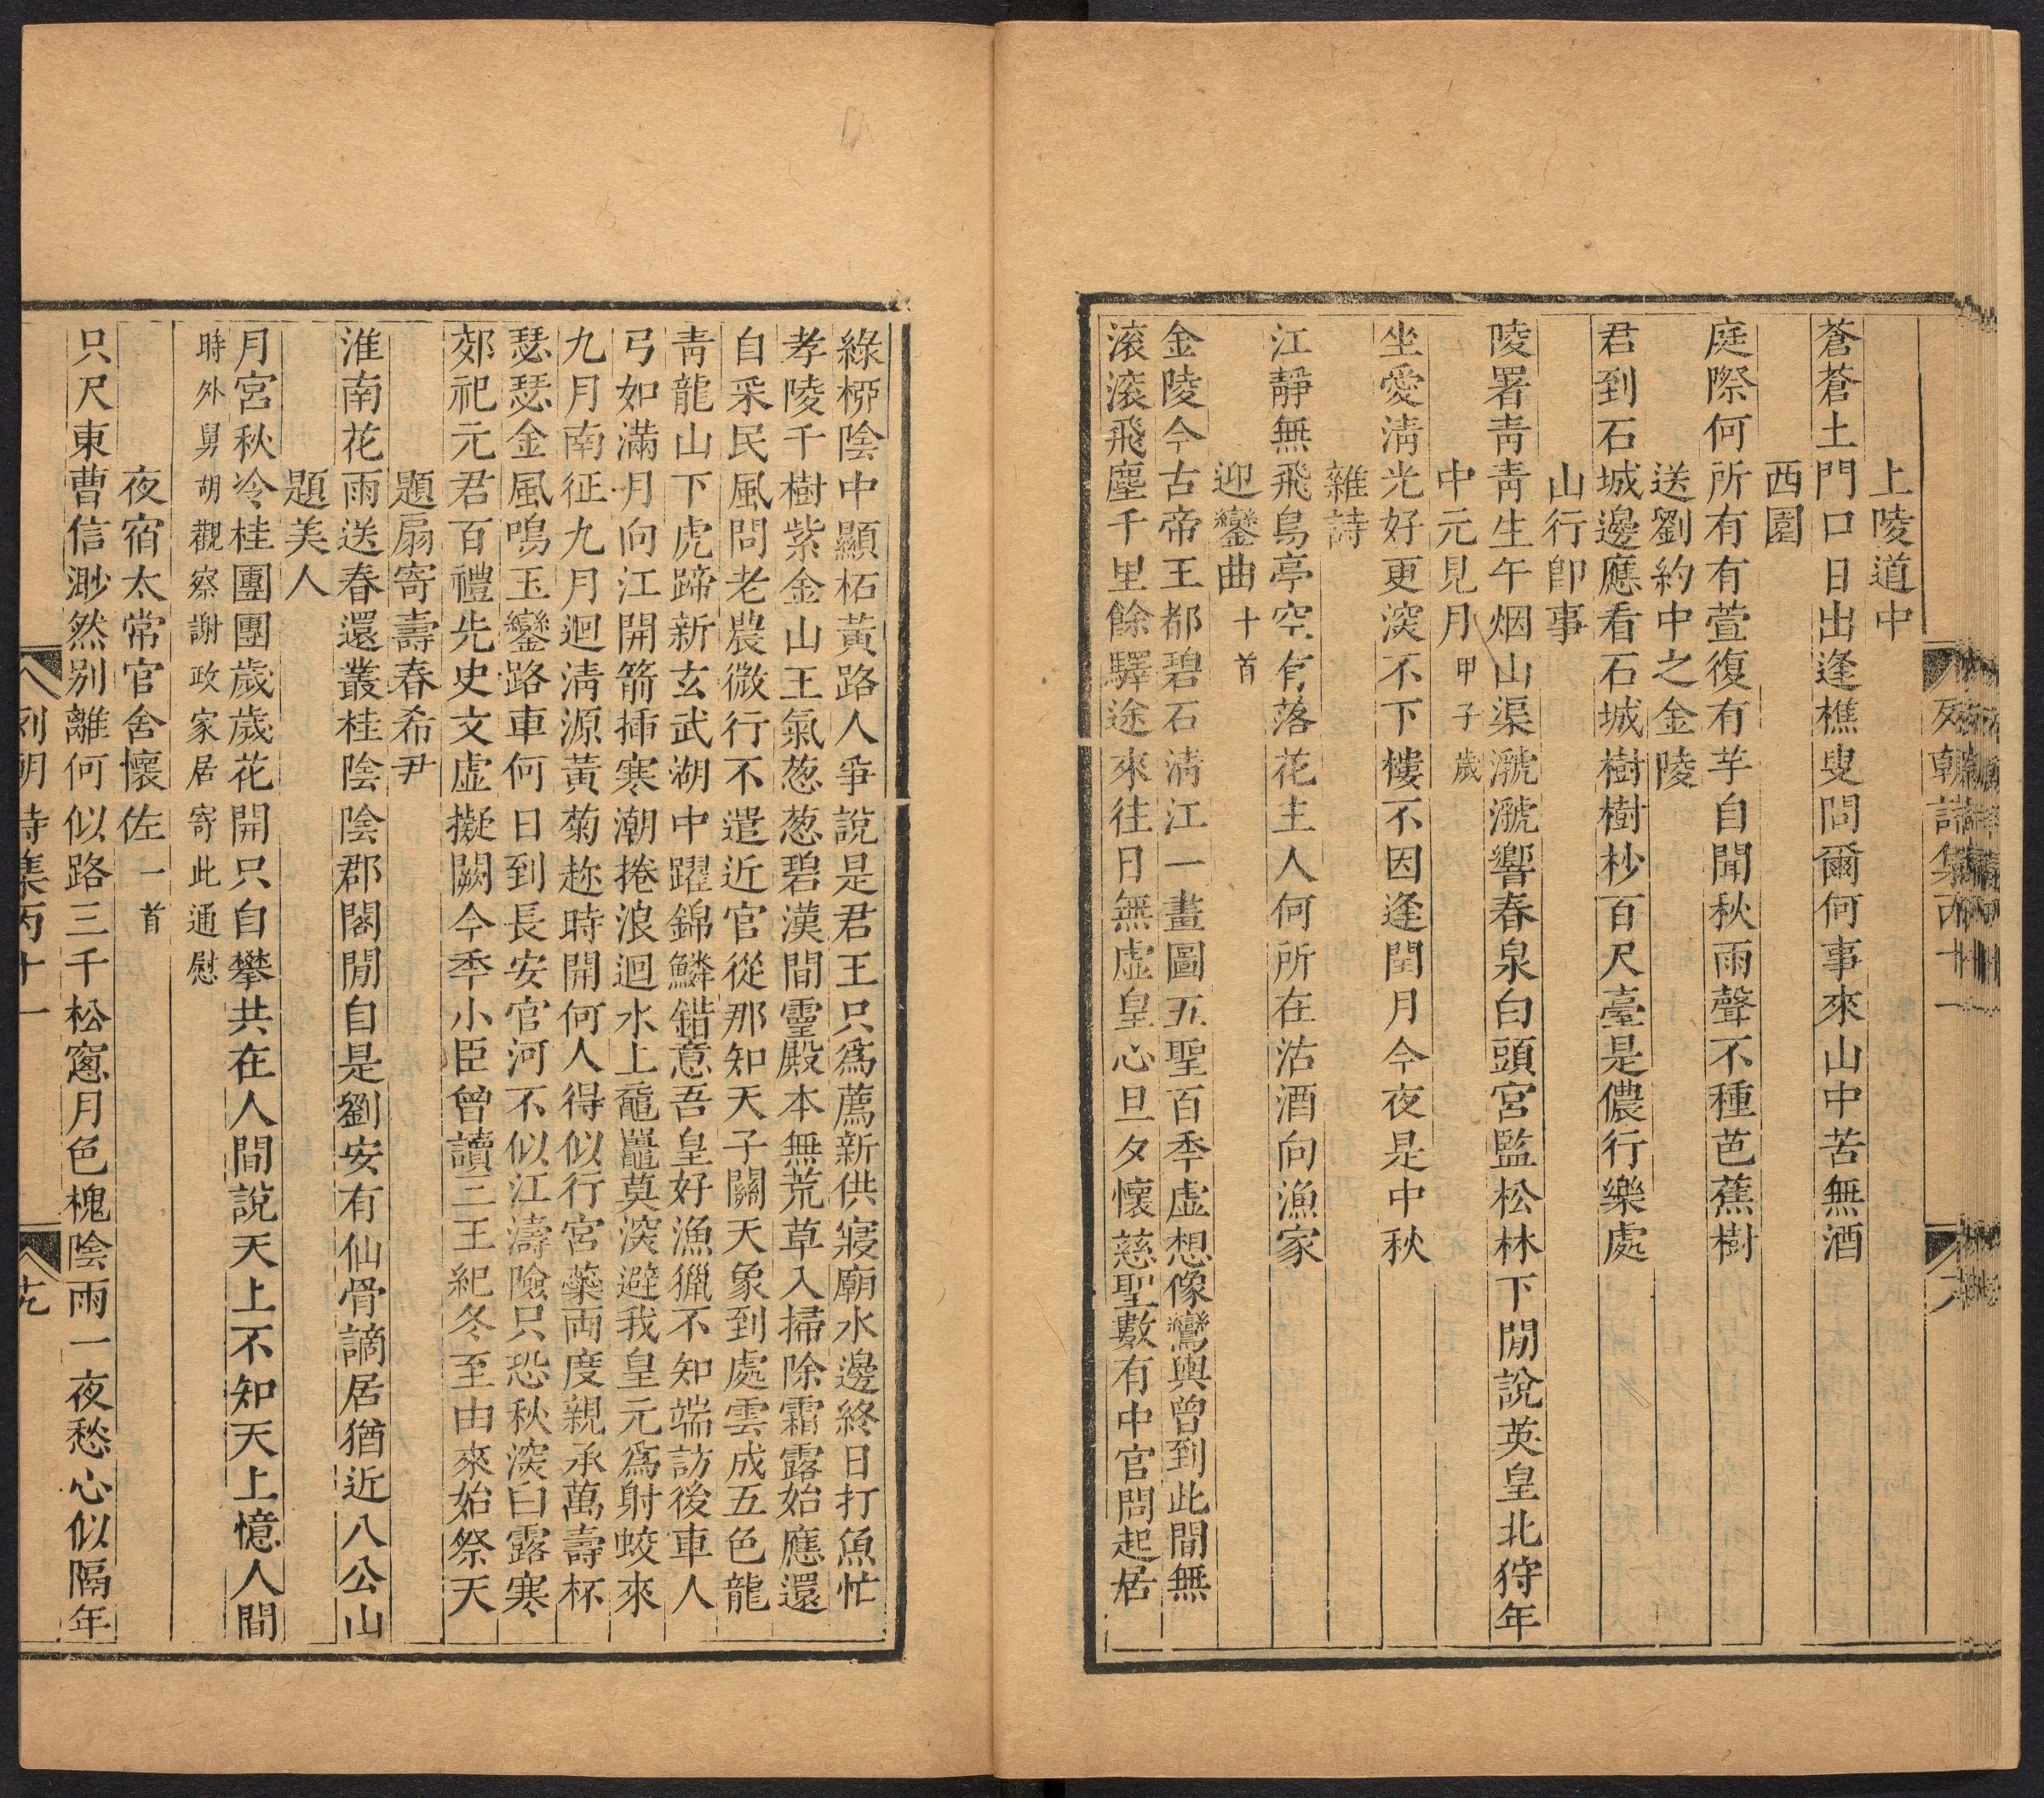 列朝詩集丙十一
上陵道中
蒼蒼土門口日出逢樵叟問爾何事來山中苦無酒
西園
庭際何所有有萱復有芋自聞秋雨聲不種芭蕉樹
送劉約中之金陵
君到石城邊應看石城樹樹杪百尺臺是儂行樂處
山行卽事
陵署靑靑生午烟山渠㶁㶁響春泉白頭宮監松林下閒說英皇北狩年
中元見月甲子歲
坐愛淸光好更深不下樓不因逢閏月今夜是中秋
雜詩
江靜無飛鳥亭空有落花主人何所在沽酒向漁家
迎鑾曲十首
金陵今古帝王都碧石淸江一畫圖五聖百秊虛想像鸞輿曾到此間無
滚滚飛塵千里餘驛途來往日無虛皇心旦夕懷慈聖數有中官問起居
綠桺陰中顯柘黃路人爭說是君王只爲薦新供寢廟水邊終日打魚忙
孝陵千樹紫金山王氣葱葱碧漢間靈殿本無荒草入掃除霜露始應還
自采民風問老農微行不遣近官從那知天子關天象到處雲成五色龍
靑龍山下虎蹄新玄武湖中躍錦鱗錯意吾皇好漁獵不知端訪後車人
弓如滿月向江開箭揷寒潮捲浪迴水上黿鼉莫深避我皇元爲射蛟來
九月南征九月迴淸源黃菊趂時開何人得似行宮藥両度親承萬壽杯
瑟瑟金風鳴玉鑾路車何日到長安官河不似江濤險只恐秋深白露寒
郊祀元君百禮先史文虛擬闕今秊小臣曾讀三王紀冬至由來始祭天
題扇寄壽春希尹
淮南花雨送春還叢桂陰陰郡閣閒自是劉安有仙骨謫居猶近八公山
題美人
月宮秋冷桂團團歲歲花開只自攀共在人間說天上不知天上憶人間
時外舅胡觀察謝政家居寄此通慰
夜宿太常官舍懷佐一首
只尺東曹信渺然別離何似路三千松窻月色槐陰雨一夜愁心似隔年
列朝詩集丙十一